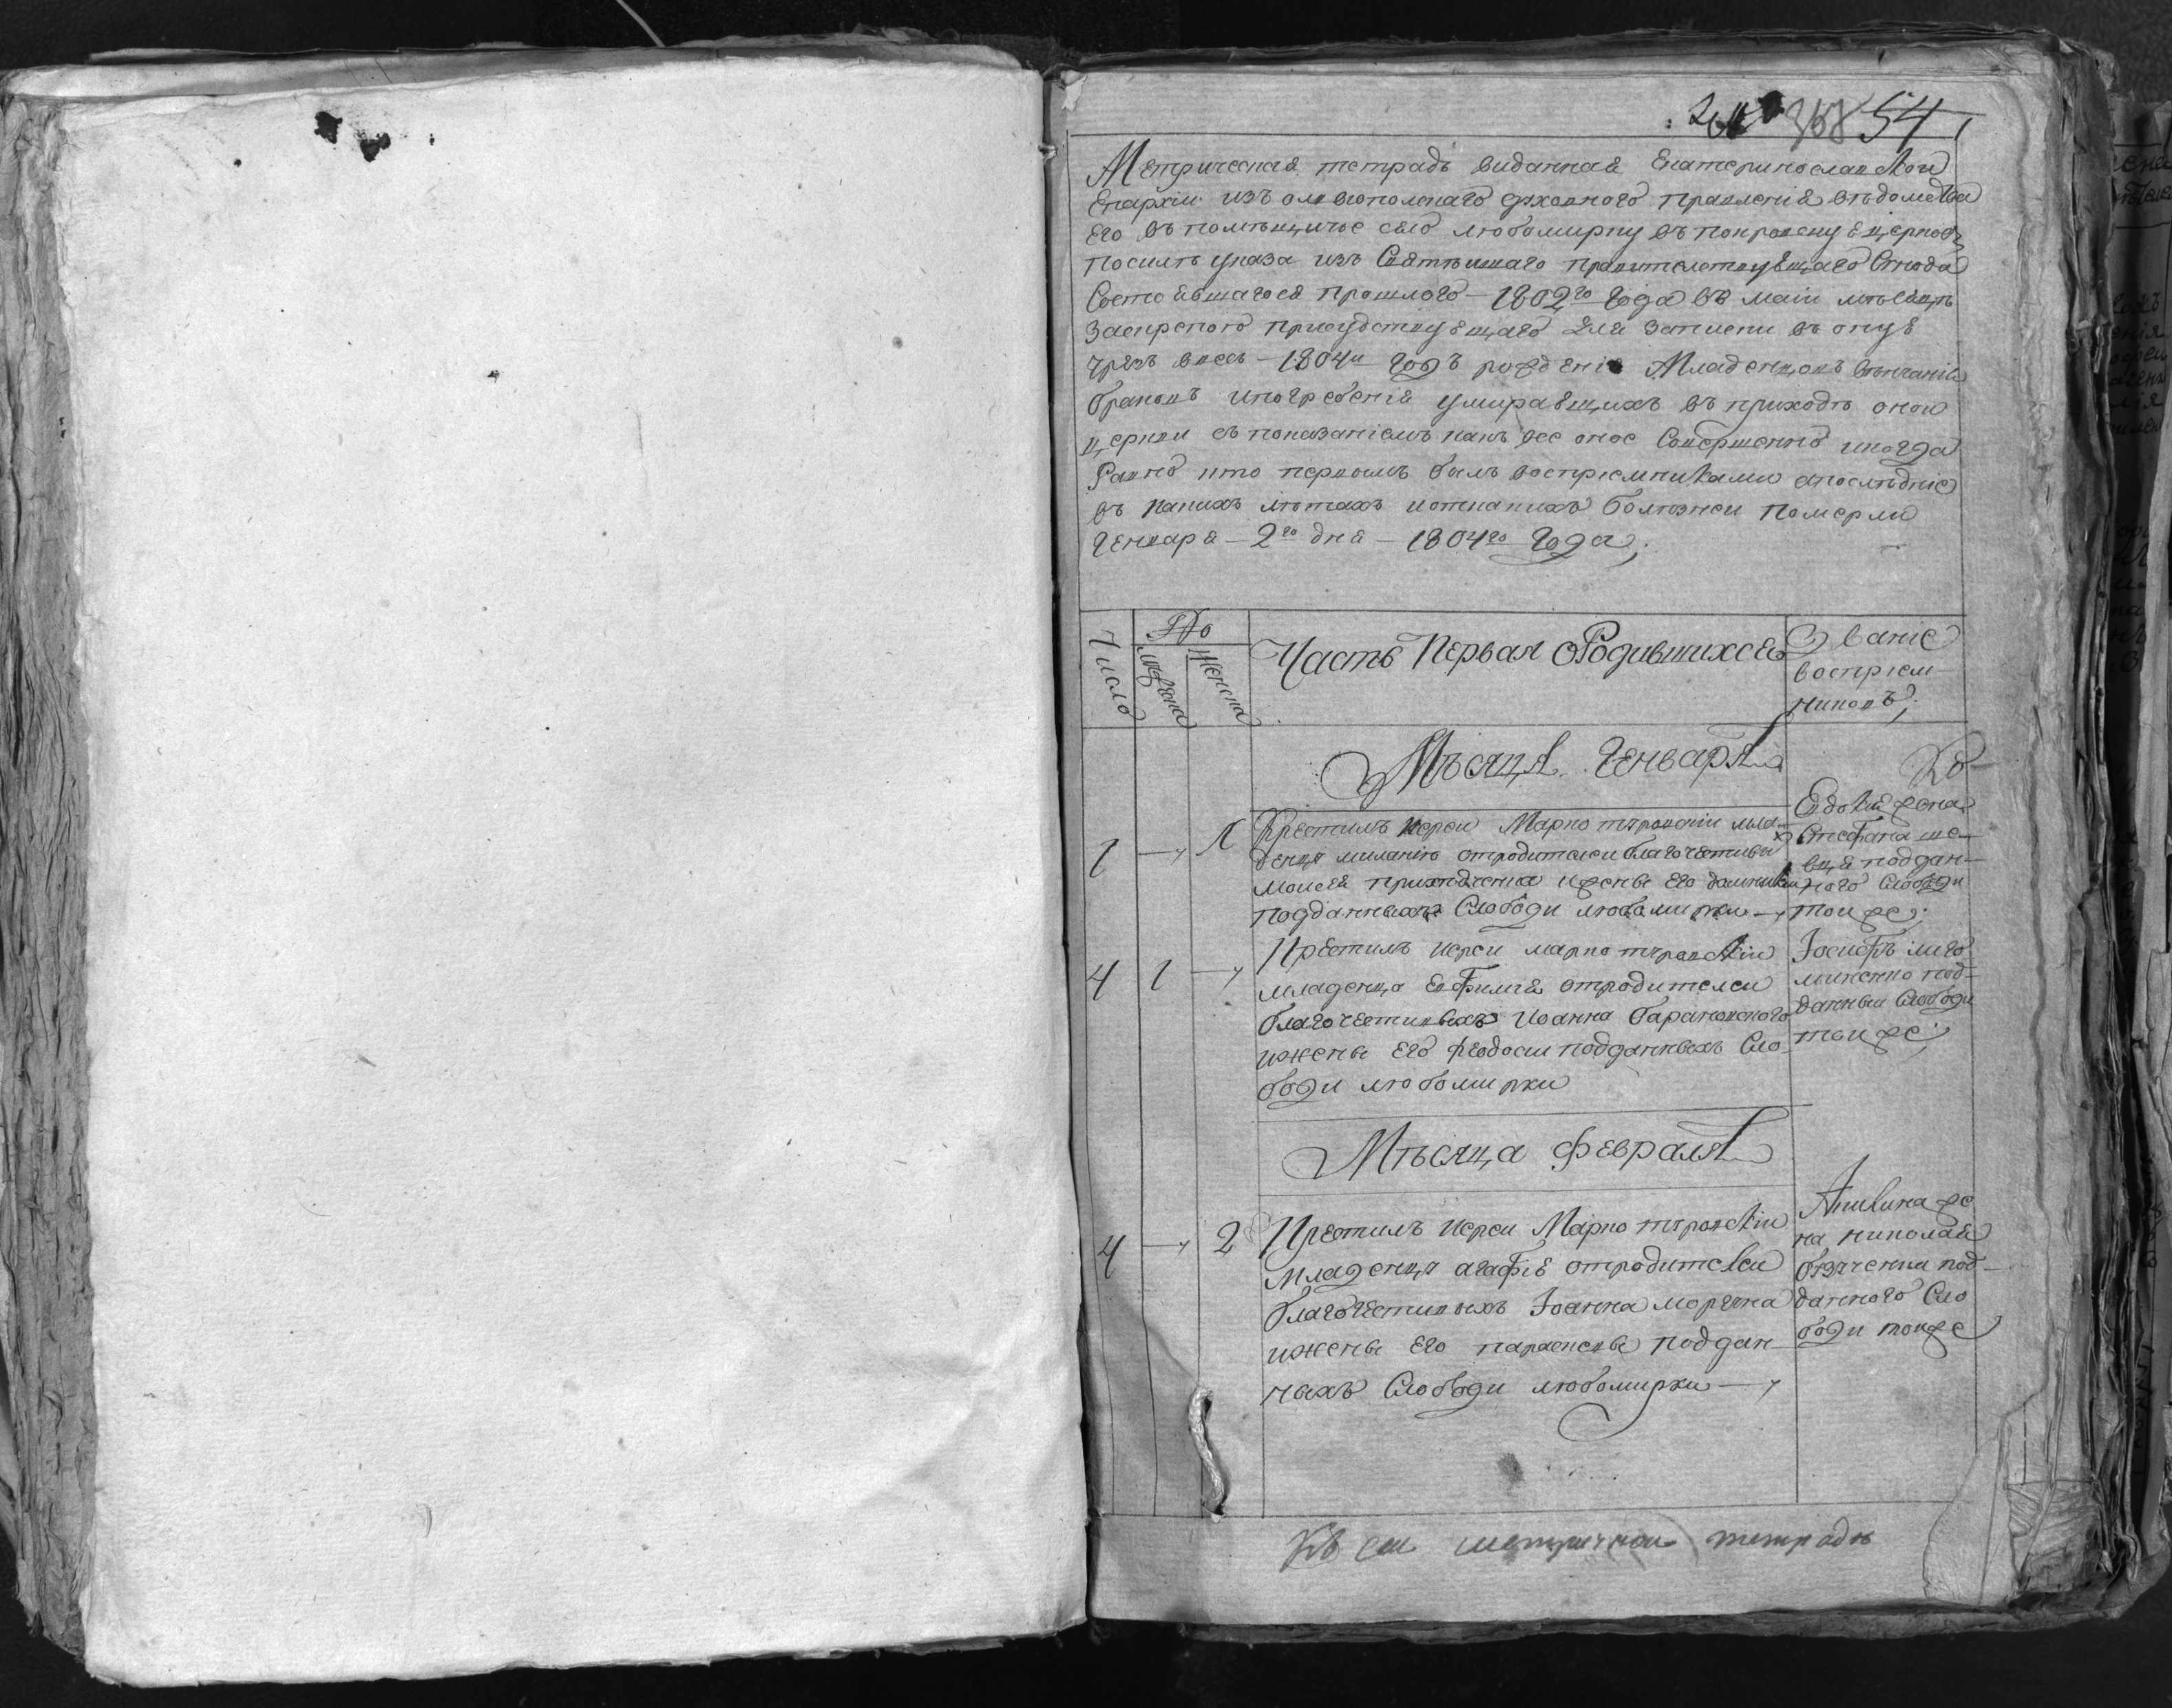 54
Метрическая тетрадь виданная Екатеринославской
Епархіи изъ олвиополскаго духовного правленія въдомства
Его въ помъщичое село любомирку въ покровскую церковъ
Посилъ указа изъ Святъишаго правителствующаго Синода
Состоявшагося прошлого 1802го года въ маіи мъсяцъ
Заопреного присудствующаго для записки въ оную
чрезъ весь 1804и годъ рожденія Младенцовъ вънчанія
браковъ ипогребенія умирающихъ въ приходъ оной
церкви съ показаніемъ какъ все оное Совершенно икогда
Равно кто первымъ былъ воспріемниками апослъдніе
въ какихъ лътахъ иоткакихъ болъзней померли
Генваря 2го дня 1804го года;
Число
По
мужеска
Женска
Часть Первая ОРодившихся
Званіе
воспріем
никовъ;
Мъсяца Генваря
1 1 Крестилъ Иерей Марко търавскіи мла
денца миланію отродителей благочестивы
моисея приходченка ижены Его домникіи
подданныхъ Слободи любомирки
Евдокія жена
Стефана ше
вця поддан
ного Слободи
тоиже;
4 1 Крестилъ иерей марко търавскіи
младенца Евфимія отродителей
благочестивыхъ Иоанна барановского
ижены Его феодосіи подданныхъ Сло
боди любомирки
Іосифъ
подданныи Слободи
тоиже;
Мъсяца Февраля
4 2 Крестилъ иерей Марко търавскіи
Младенца агафію отродителей
благочестивыхъ Іоанна моргуна
ижены Его параскевы поддан
ныхъ Слободи любомирки
Акилина же
на николая
под
данного Сло
боди тоиже
Къ сей метричной тетрадъ